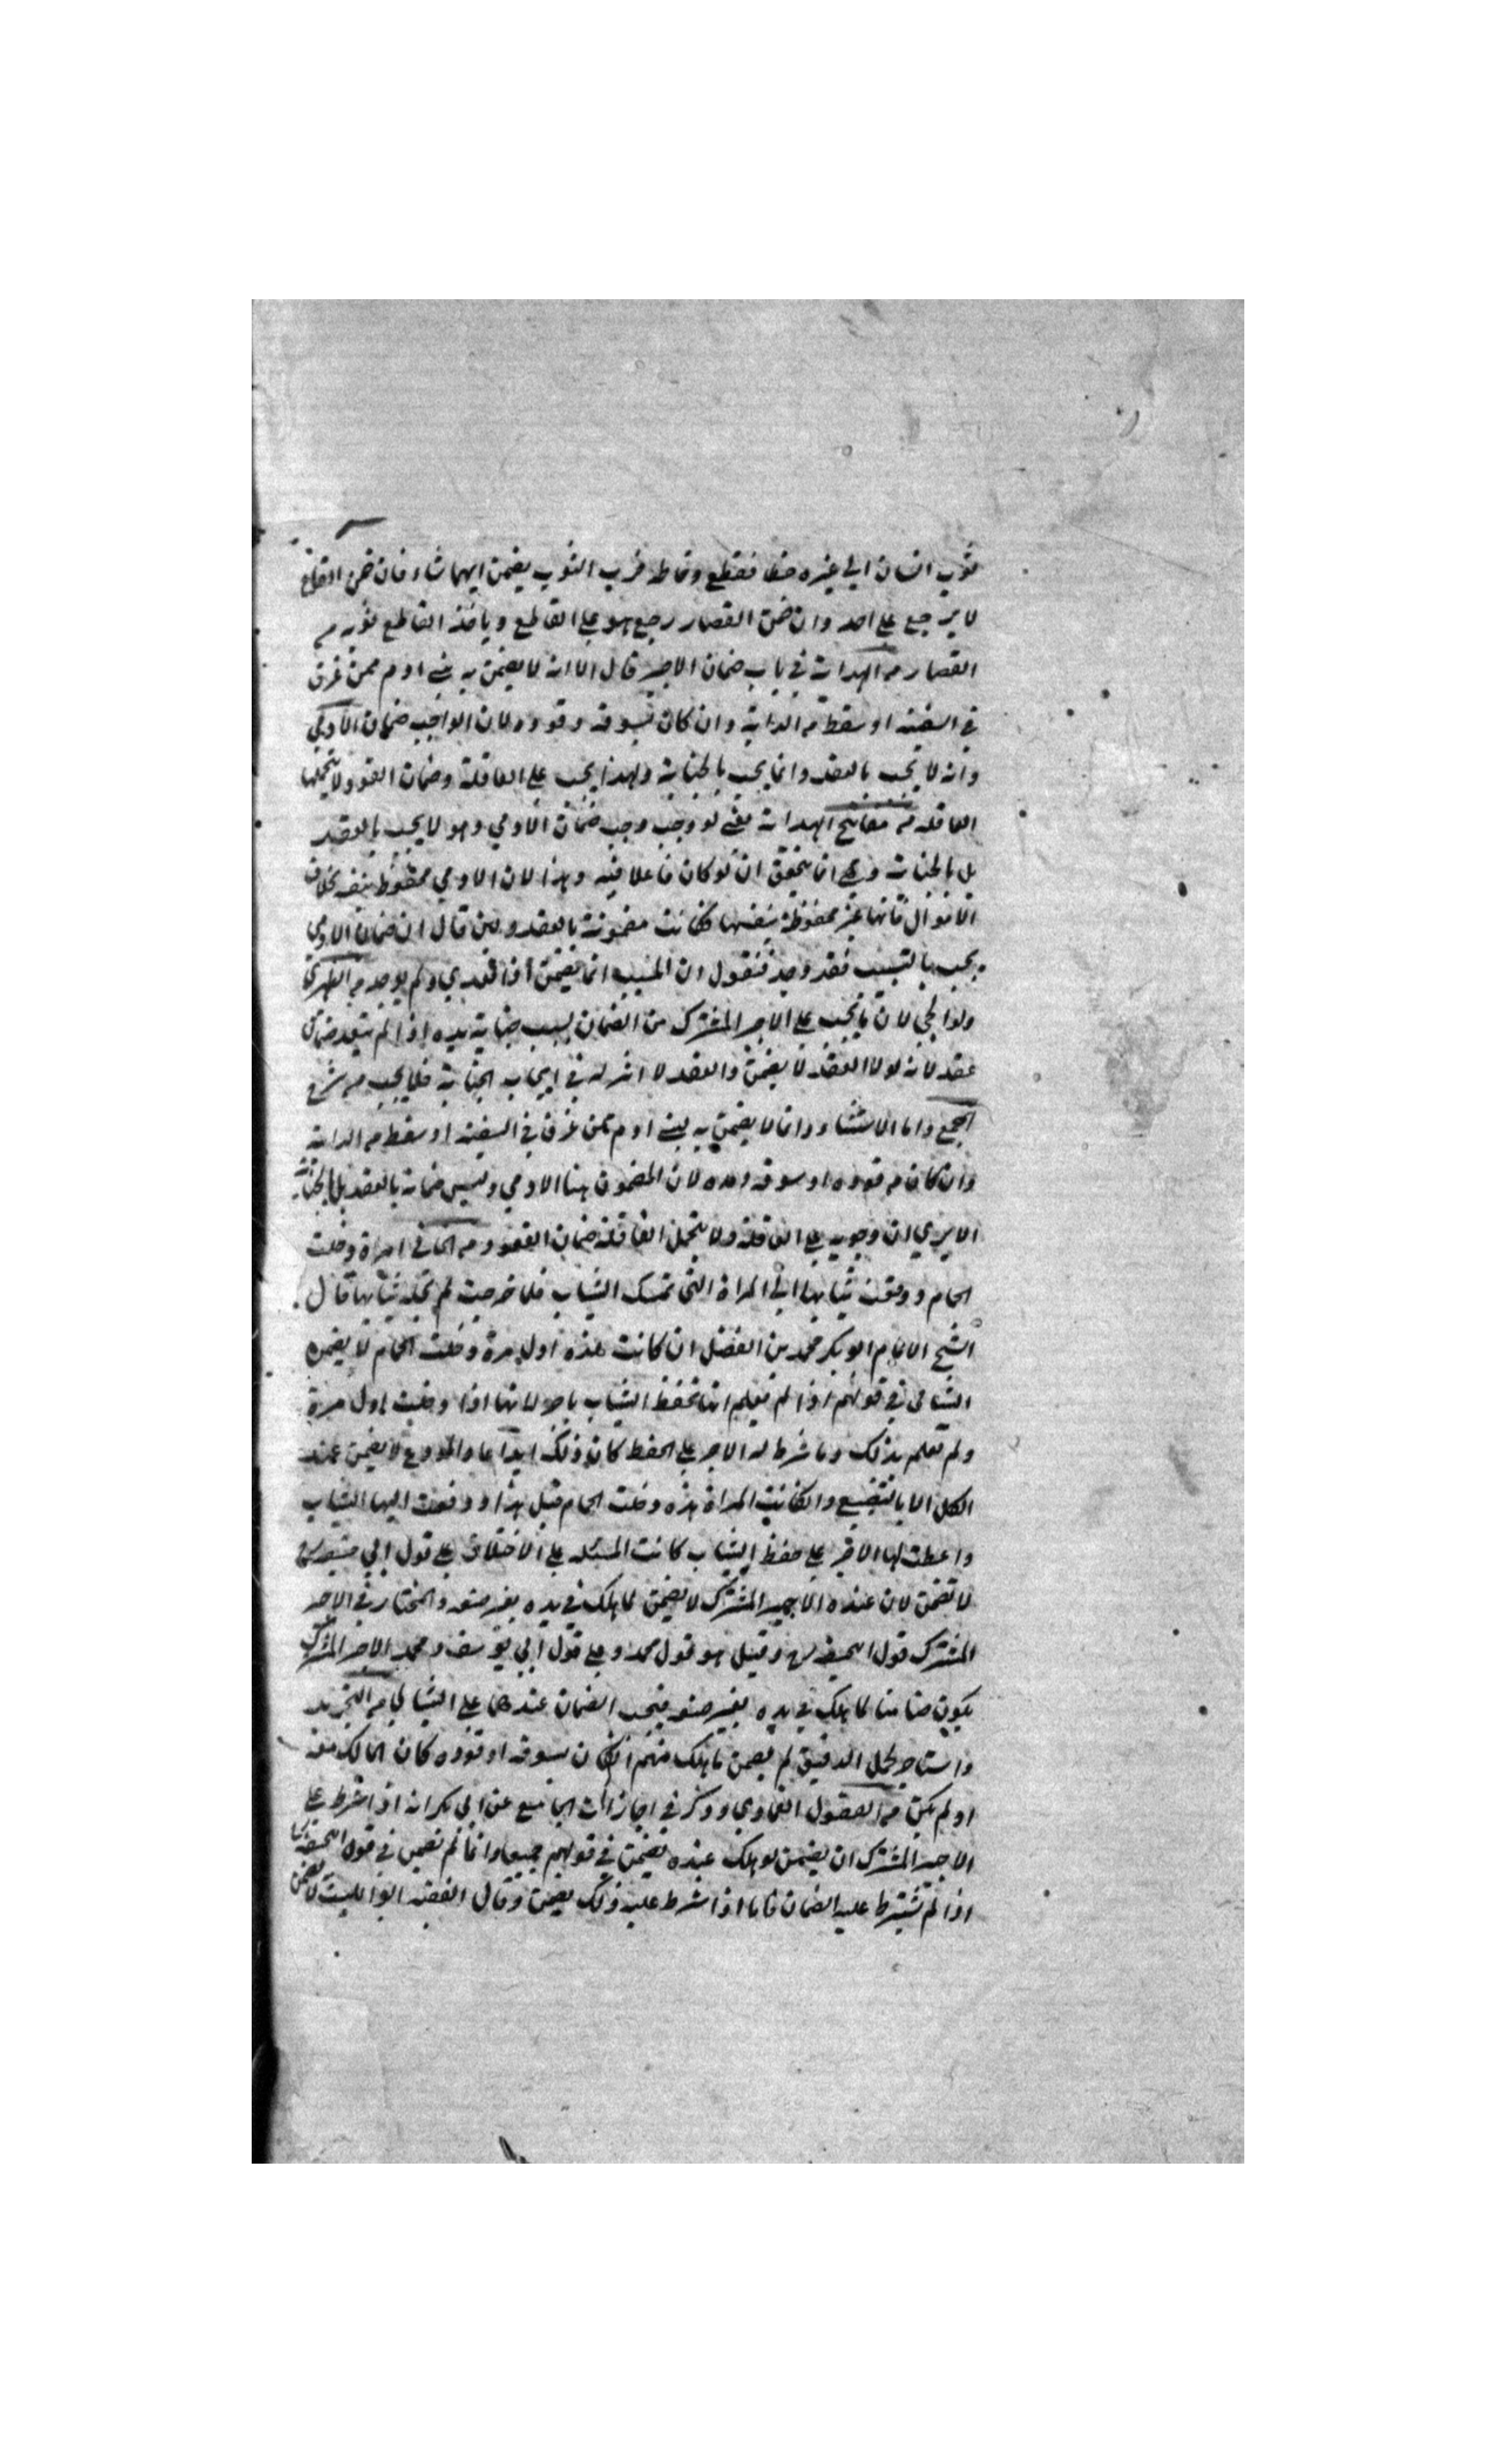 ثوب انسان الي غيره خطا فقطع وخاطه فرب الثوب يضمن ايهما شاء فان ضمن القاطع
لا يرجع علي احد وان ضمن القصار رجع هو علي القاطع وياخذ القاطع ثوبه من
القصار من الهداية في باب ضمان الاجير قال الا انه لا يضمن به بني ادم ممن غرق
في السفينة او سقط من الدابة وان كان بسوقه وقوده لان الواجب ضمان الادمي
وانه لا يجب بالعقد وانما يجب بالجناية ولهذا يجب علي العاقلة وضمان العقود لا يتحملها
العاقلة من الهداية يعني لو وجب وجب ضمان الادمي وهو لا يجب بالعقد
بل بالجناية وهي انما يتحقق ان لو كان فاعلا فيه وهذا لان الادمي محفوظ بنفسه بخلاف
الاموال فانها غير محفوظة بنفسها فكانت مضمونة بالعقد ولئن قال ان ضمان الادمي
يجب بالتسبيب فقد وجد فنقول ان المسبب انما يضمن اذا تعدي ولم يوجد من
ولوالجي لان ما يجب علي الاجير المشترك من الضمان بسبب جناية يده اذا لم يتعد ضمان
عقد لانه لولا العقد لا يضمن والعقد لا اثر له في ايجاب الجناية فلا يجب من شرح
المجمع واما الاستثناء وانما لا يضمن به بني ادم ممن غرق في السفينة او سقط من الدابة
وان كان من قوده او سوقه ومده لان المضمون هنا الادمي وليس ضمانه بالعقد بل بالجناية
الا يري ان وجوبه علي العاقلة ولا يتحمل العاقلة ضمان العقود من امراة دخلت
الحمام ودفعت ثيابها الي المراة التي تمسك الثياب فلما خرجت لم تجد ثيابها قال
الشيخ الامام ابو بكر محمد بن الفضل ان كانت هذه اول مرة دخلت الحمام لا يضمن
الثيابي في قولهم اذا لم تعلم انها تحفظ الثياب باجر لانها اذا دخلت اول مرة
ولم تعلم بذلك وما شرط له الاجر علي الحفظ كان ذلك ايداعا والمودع لا يضمن عند
الكل الا بالتضييع وان كانت المراة هذه دخلت الحمام قبل هذا ودفعت اليها الثياب
واعطت لها الاجر علي حفظ الثياب كانت المسئلة علي الاختلاف علي قول ابي حنيفة
لا تضمن لان عنده الاجير المشترك لا يضمن لما هلك في يده بغير صنعه والمختار في الاجير
المشترك قول ابي حنيفة وقيل هو قول محمد وعلي قول ابي يوسف ومحمد الاجير المشترك
يكون ضامنا لما هلك في يده بغير صنعه فيجب الضمان عندهما علي الثيابي من التجريد
واستاجر لحمل الدقيق لم يضمن ما هلك منهم ان كان بسوقه او قوده كان المالك معه
او لم يكن من الفصول العمادي وذكر في اجازات الجامع عن ابي بكر انه اذا شرط علي
الاجير المشترك ان يضمن لو هلك عنده يضمن في قولهم جميعا وانما لم يضمن في قول ابي حنيفة
اذا لم يشترط عليه الضمان فاما اذا شرط عليه ذلك يضمن وقال الفقيه ابو الليث لا يضمن